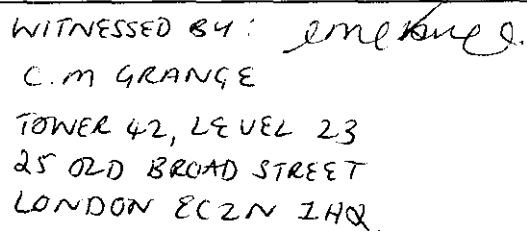 WITNESSED BY:
C.M GRANGE
TOWER 42, LEVEL 23
25 OLD BROAD STREET
LONDON EC2N 1HQ